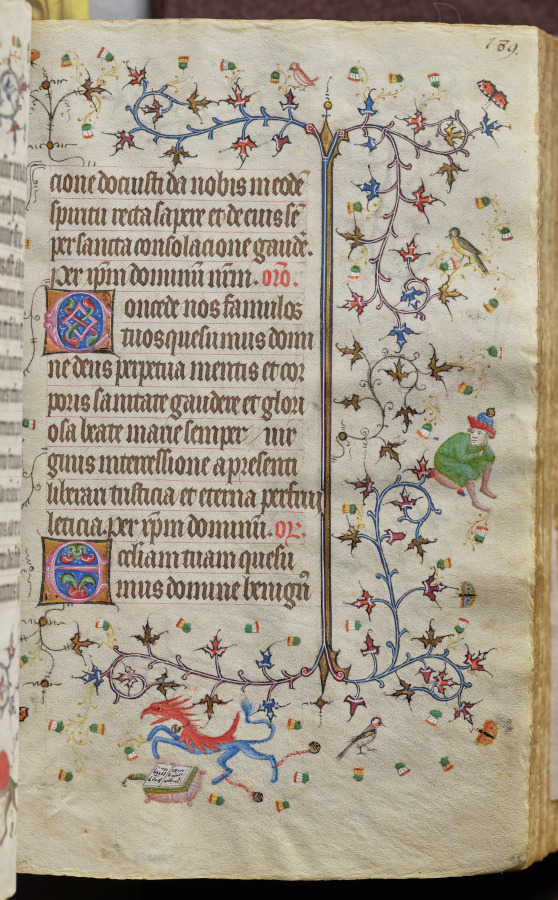 789.
cione docuisti da nobis in eodē
spiritu recta sapere et de eius sē
per sancta consolacione gaudē.
Per xp̄m dominū nr̄m. or̄o.
Concede nos famulos
tuos quesumus domi
ne deus perpetua mentis et cor
poris sanitate gaudere et glori
osa beate marie semper vir
ginis intercessione a presenti
liberari tristicia et eterna perfrui
leticia. per xp̄m dominū. or̄.
Ecclesiam tuam quesu
mus domine benignū